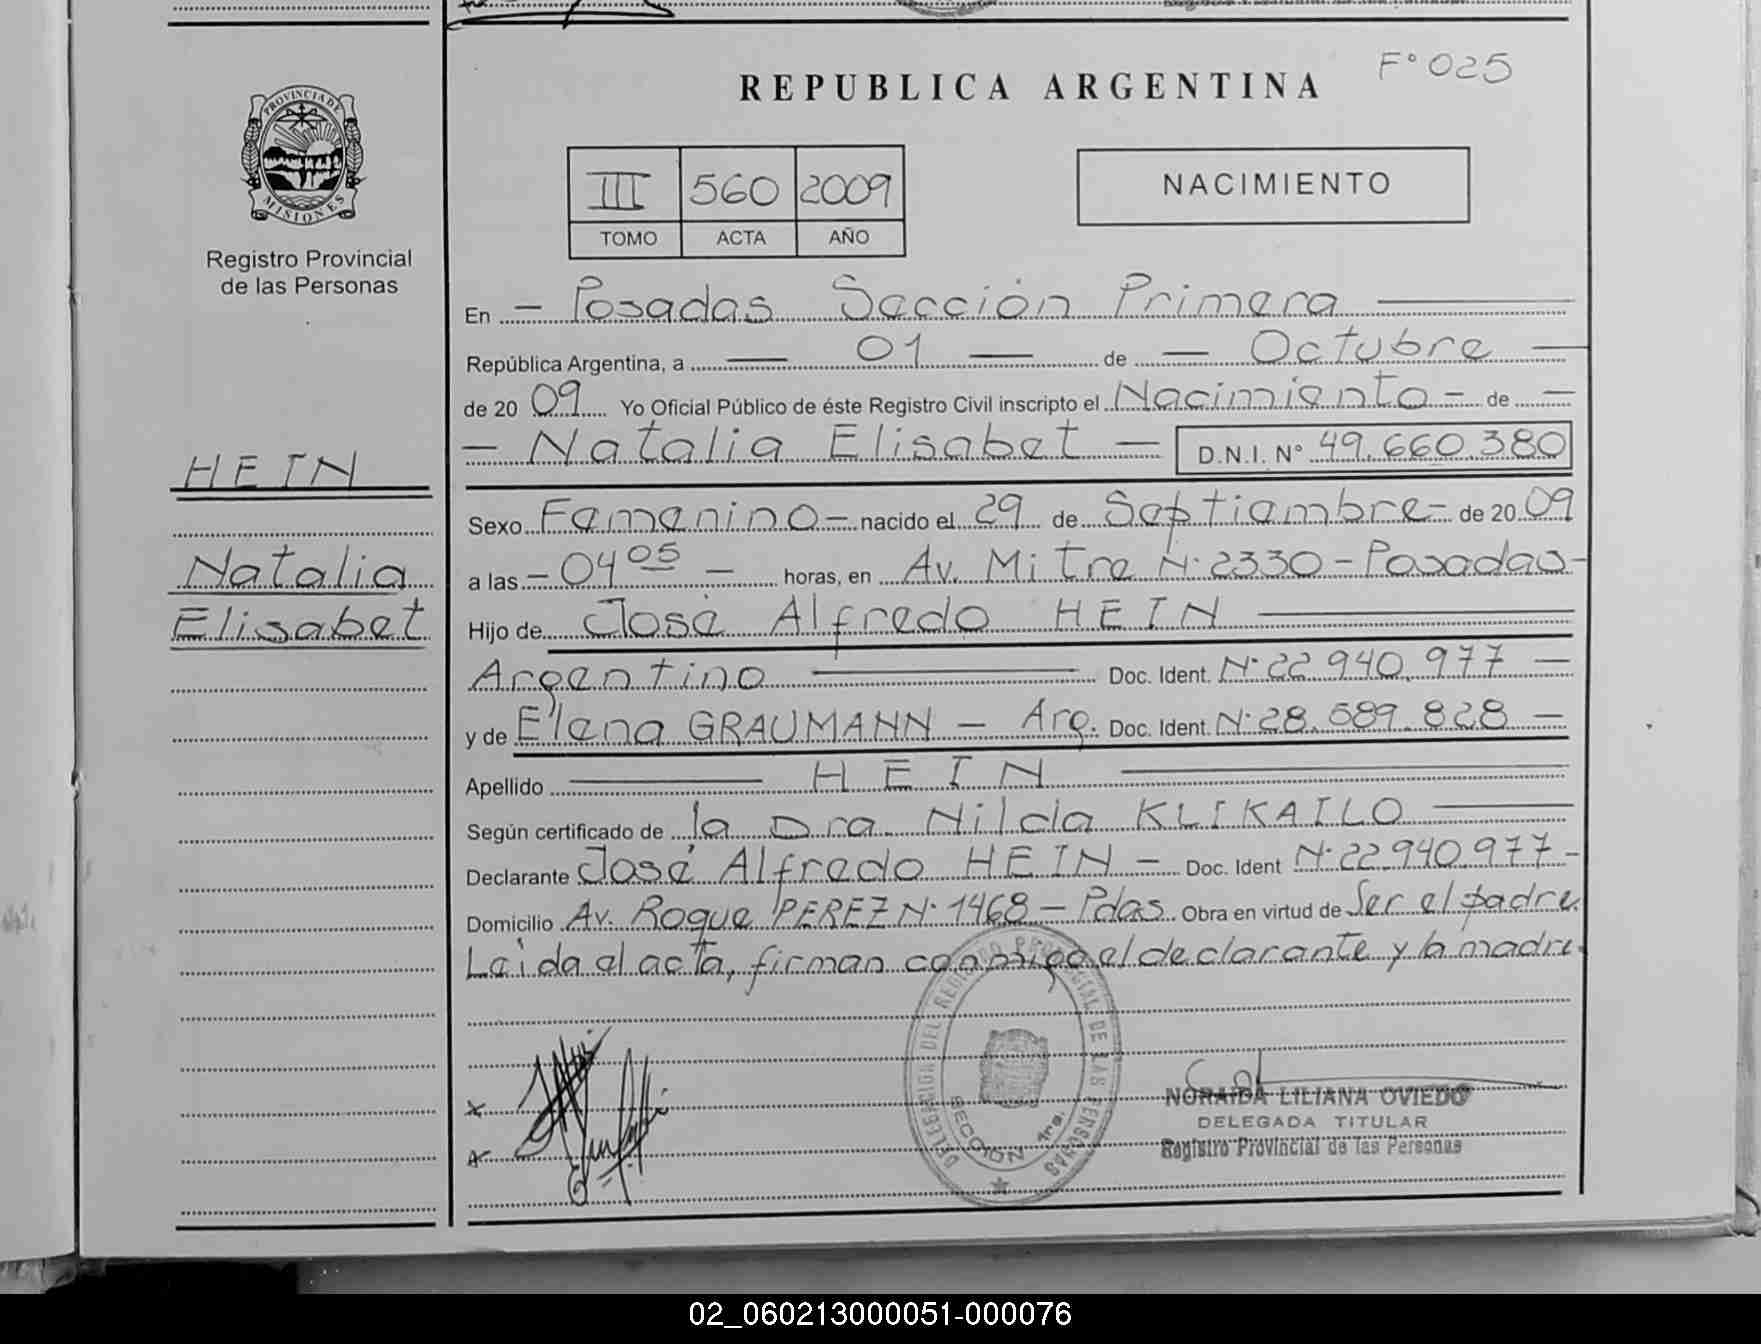 F° 025
REPUBLICA ARGENTINA
PROVINCIA DE
MISIONES
Registro Provincial
de las Personas
III 560 2009
TOMO ACTA AÑO
NACIMIENTO
En - Posadas Sección Primera
República Argentina, a 01 de - Octubre -
de 20 09 Yo Oficial Público de éste Registro Civil inscripto el Nacimiento - de -
- Natalia Elisabet - D.N.I. N° 49.660.380
HEIN
Natalia
Elisabet
Sexo Femenino - nacido el 29 de Septiembre - de 20 09
a las - 04 05 - horas, en Av. Mitre N° 2330 - Posadas -
Hijo de José Alfredo HEIN
Argentino Doc. Ident. N° 22.940.977 -
y de Elena GRAUMANN - Arg. Doc. Ident. N° 28.589.828 -
Apellido HEIN
Según certificado de la Dra. Nilda KLIKAILO
Declarante José Alfredo HEIN - Doc. Ident N° 22.940.977 -
Domicilio Av. Roque PEREZ N° 1468 - Pdas. Obra en virtud de Ser el padre.
Leida el acta, firman conmigo el declarante y la madre.
DELEGACION DEL REGISTRO PROVINCIAL DE LAS PERSONAS
SECCION 1ra.
NORAIDA LILIANA OVIEDO
DELEGADA TITULAR
Registro Provincial de las Personas
02_060213000051-000076